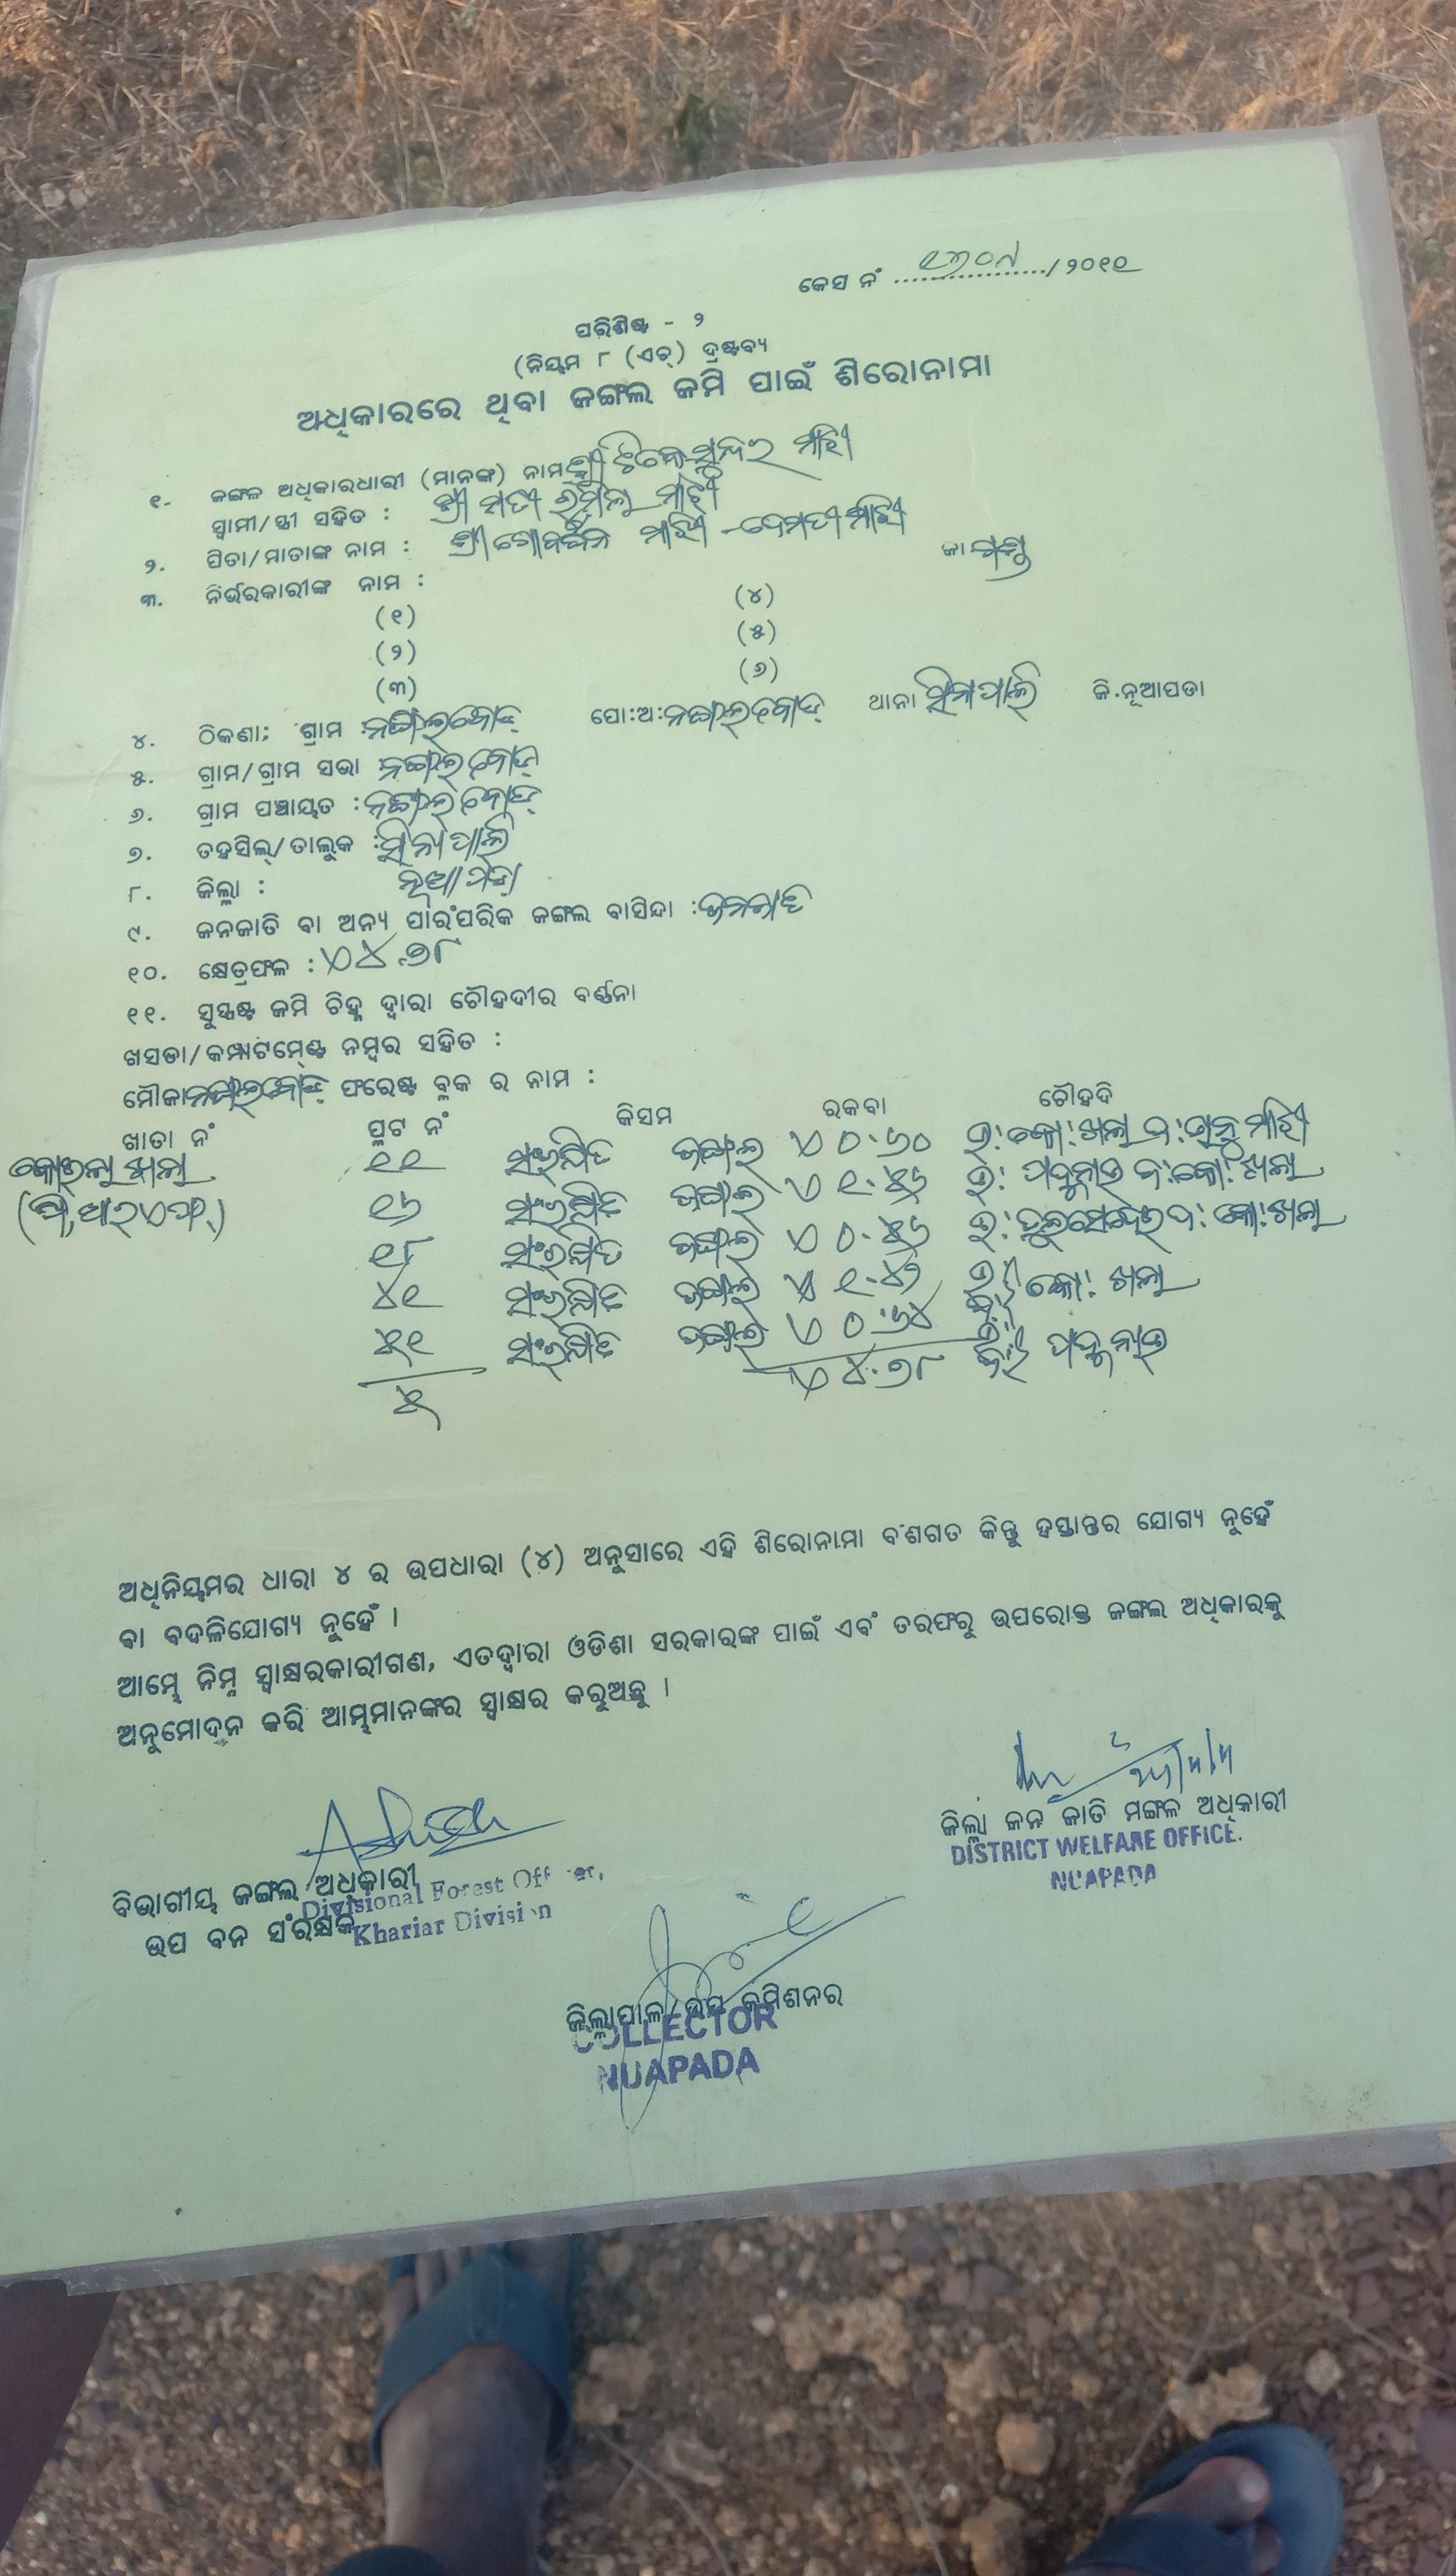 କେସ ନଂ ୧୩୦୩/୨୦୧୧
ପରିଶିଷ୍ଟ - ୨
(ନିୟମ ୮ (ଏଚ୍) ଦ୍ରଷ୍ଟବ୍ୟ
ଅଧିକାରରେ ଥିବା ଜଙ୍ଗଲ ଜମି ପାଇଁ ଶିରୋନାମା
୧- ଜଙ୍ଗଳ ଅଧିକାରଧାରୀ (ମାନଙ୍କ) ନାମ ଶ୍ରୀ ଟିକେସୁନ୍ଦର ମାଝି
ସ୍ୱାମୀ/ସ୍ତ୍ରୀ ସହିତ : ଶ୍ରୀ ମତୀ ମାଝି
୨. ପିତା/ମାତାଙ୍କ ନାମ : ଶ୍ରୀ ଗୋବର୍ଦ୍ଧନ ମାଝି - ଦେମତୀ ମାଝି ଜା ଗଣ୍ଡ
୩. ନିର୍ଭରକାରୀଙ୍କ ନାମ :
(୧) (୪)
(୨) (୫)
(୩) (୬)
୪. ଠିକଣା; ଗ୍ରାମ ନଙ୍ଗଲବୋଡ଼ ପୋ:ଅ: ନଙ୍ଗଲବୋଡ଼ ଥାନା ସିନାପାଲି ଜି.ନୂଆପଡା
୫. ଗ୍ରାମ/ଗ୍ରାମ ସଭା ନଙ୍ଗଲବୋଡ଼
୬. ଗ୍ରାମ ପଞ୍ଚାୟତ : ନଙ୍ଗଲବୋଡ଼
୭. ତହସିଲ୍/ତାଲୁକ : ସିନାପାଲି
୮. ଜିଲ୍ଲା : ନୂଆପଡ଼ା
୯. ଜନଜାତି ବା ଅନ୍ୟ ପାରଂପରିକ ଜଙ୍ଗଲ ବାସିନ୍ଦା : ଜନଜାତି
୧୦. କ୍ଷେତ୍ରଫଳ : ଏ ୪.୭୮
୧୧. ସୁସ୍ପଷ୍ଟ ଜମି ଚିହ୍ନ ଦ୍ୱାରା ଚୌହଦୀର ବର୍ଣ୍ଣନା
ଖସଡା/କମ୍ପାଟମେଣ୍ଟ ନମ୍ବର ସହିତ :
ମୌଜା ନଙ୍ଗଲବୋଡ଼ ଫରେଷ୍ଟ ବ୍ଲକ ର ନାମ :
ଖାତା ନଂ ପ୍ଳଟ ନଂ କିସମ ରକବା ଚୌହଦି
୧୧ ସଂରକ୍ଷିତ ଜଙ୍ଗଲ ଏ ୦.୬୦ ଉ: କୋ: ଖଲା ଦ: ମାଝି
(ପି,ଆର୍ଏଫ୍) ୧୬ ସଂରକ୍ଷିତ ଜଙ୍ଗଲ ଏ ୧.୫୬ ଉ: ଦ: କୋ: ଖଲା
୧୮ ସଂରକ୍ଷିତ ଜଙ୍ଗଲ ଏ ୦.୫୬ ଉ: ଦ: କୋ: ଖଲା
୪୧ ସଂରକ୍ଷିତ ଜଙ୍ଗଲ ଏ କୋ: ଖଲା
୫୧ ସଂରକ୍ଷିତ ଜଙ୍ଗଲ ଏ ୦.୬୪
୫ ଏ ୪.୭୮
ଅଧିନିୟମର ଧାରା ୪ ର ଉପଧାରା (୪) ଅନୁସାରେ ଏହି ଶିରୋନାମା ବଂଶଗତ କିନ୍ତୁ ହସ୍ତାନ୍ତର ଯୋଗ୍ୟ ନୁହେଁ
ବା ବଦଳିଯୋଗ୍ୟ ନୁହେଁ ।
ଆମ୍ଭେ ନିମ୍ନ ସ୍ୱାକ୍ଷରକାରୀଗଣ, ଏତଦ୍ୱାରା ଓଡିଶା ସରକାରଙ୍କ ପାଇଁ ଏବଂ ତରଫରୁ ଉପରୋକ୍ତ ଜଙ୍ଗଲ ଅଧିକାରକୁ
ଅନୁମୋଦନ କରି ଆମ୍ଭମାନଙ୍କର ସ୍ୱାକ୍ଷର କରୁଅଛୁ ।
ବିଭାଗୀୟ ଜଙ୍ଗଲ ଅଧିକାରୀ
Divisional Forest Officer,
ଉପ ବନ ସଂରକ୍ଷକ
Khariar Division
ଜିଲ୍ଲା ଜନ ଜାତି ମଙ୍ଗଳ ଅଧିକାରୀ
DISTRICT WELFARE OFFICE.
NUAPADA
ଜିଲ୍ଲାପାଳ/ଉପ କମିଶନର
COLLECTOR
NUAPADA